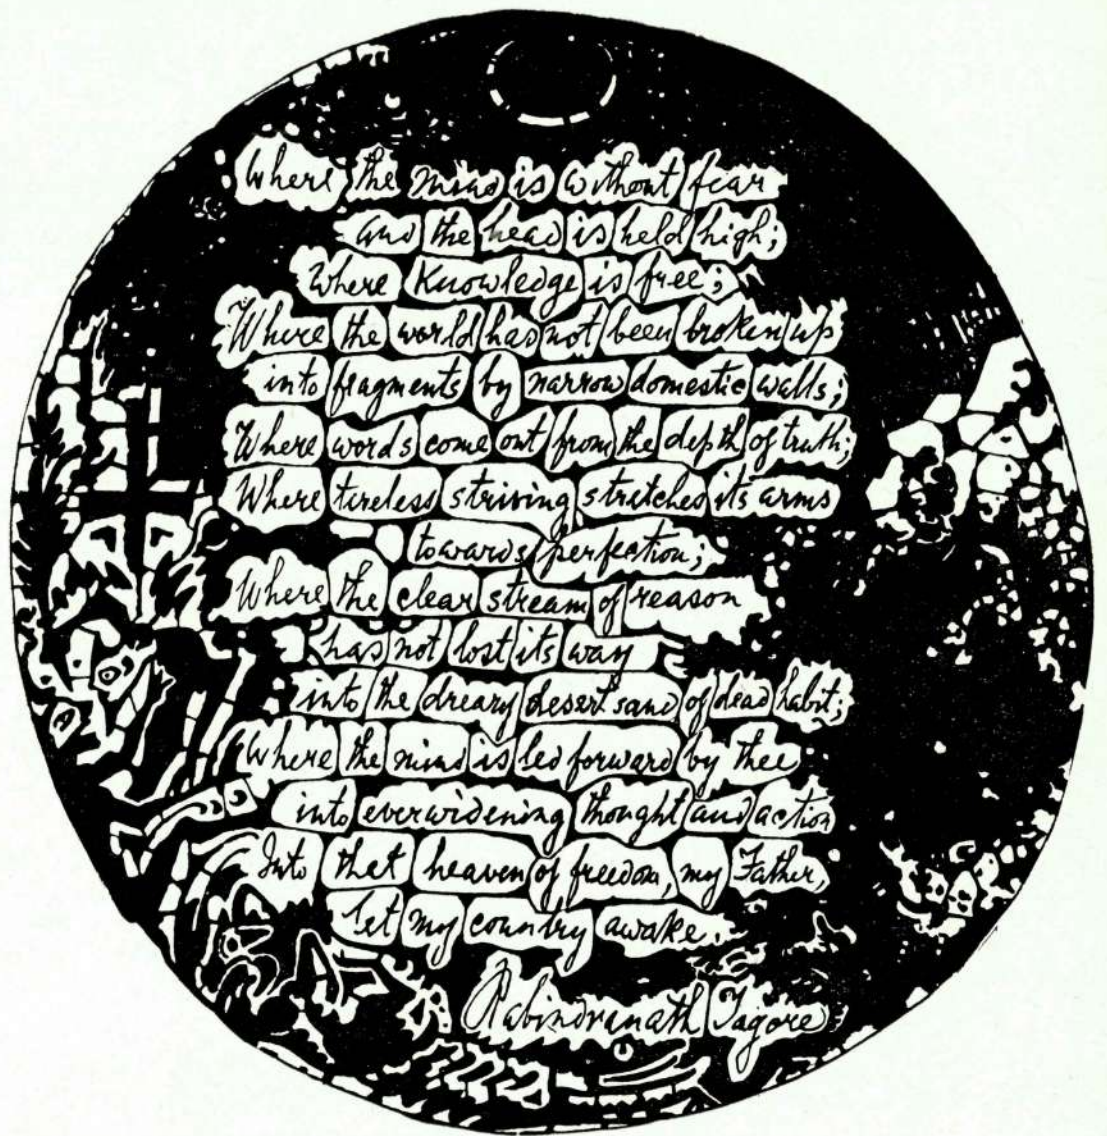 Where the mind is without fear
and the head is held high;
Where knowledge is free;
Where the world has not been broken up
into fragments by narrow domestic walls;
Where words come out from the depth of truth;
Where tireless striving stretches its arms
towards perfection;
Where the clear stream of reason
has not lost its way
into the dreary desert sand of dead habit;
Where the mind is led forward by thee
into everwidening thought and action
Into that heaven of freedom, my Father,
let my country awake.
Rabindranath Tagore